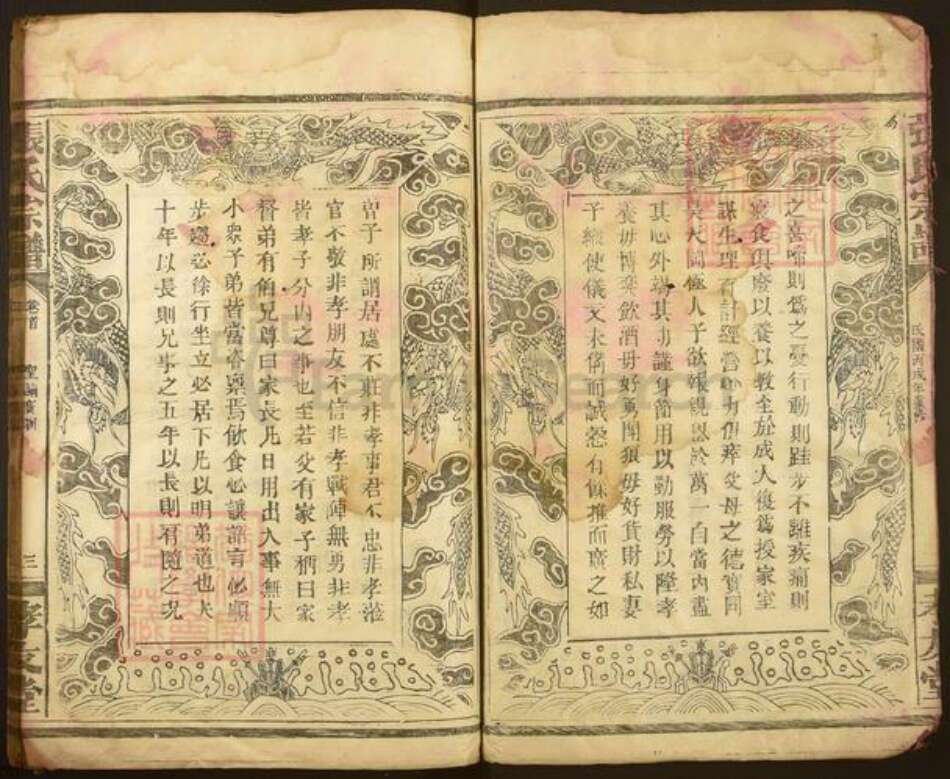 張氏宗譜
之喜啼則爲之憂行動則跬步不離疾痛則
寢食俱廢以養以教至於成人復爲授家室
謀生理百計經營心力俱瘁父母之德實同
昊天罔極人子欲報親恩於萬一自當內盡
其心外竭其力謹身節用以勤服勞以隆孝
養毋博奕飲酒毋好勇鬭狠毋好貨財私妻
子縱使儀文未備而誠慤有餘推而廣之如
孝友堂
曾子所謂居處不莊非孝事君不忠非孝涖
官不敬非孝朋友不信非孝戰陣無勇非孝
皆孝子分內之事也至若父有冢子稱曰家
督弟有伯兄尊曰家長凡日用出入事無大
小衆子弟皆當咨禀焉飲食必讓語言必順
步趨必徐行坐立必居下凡以明弟道也夫
十年以長則兄事之五年以長則肩隨之況
張氏宗譜
卷首
三
孝友堂